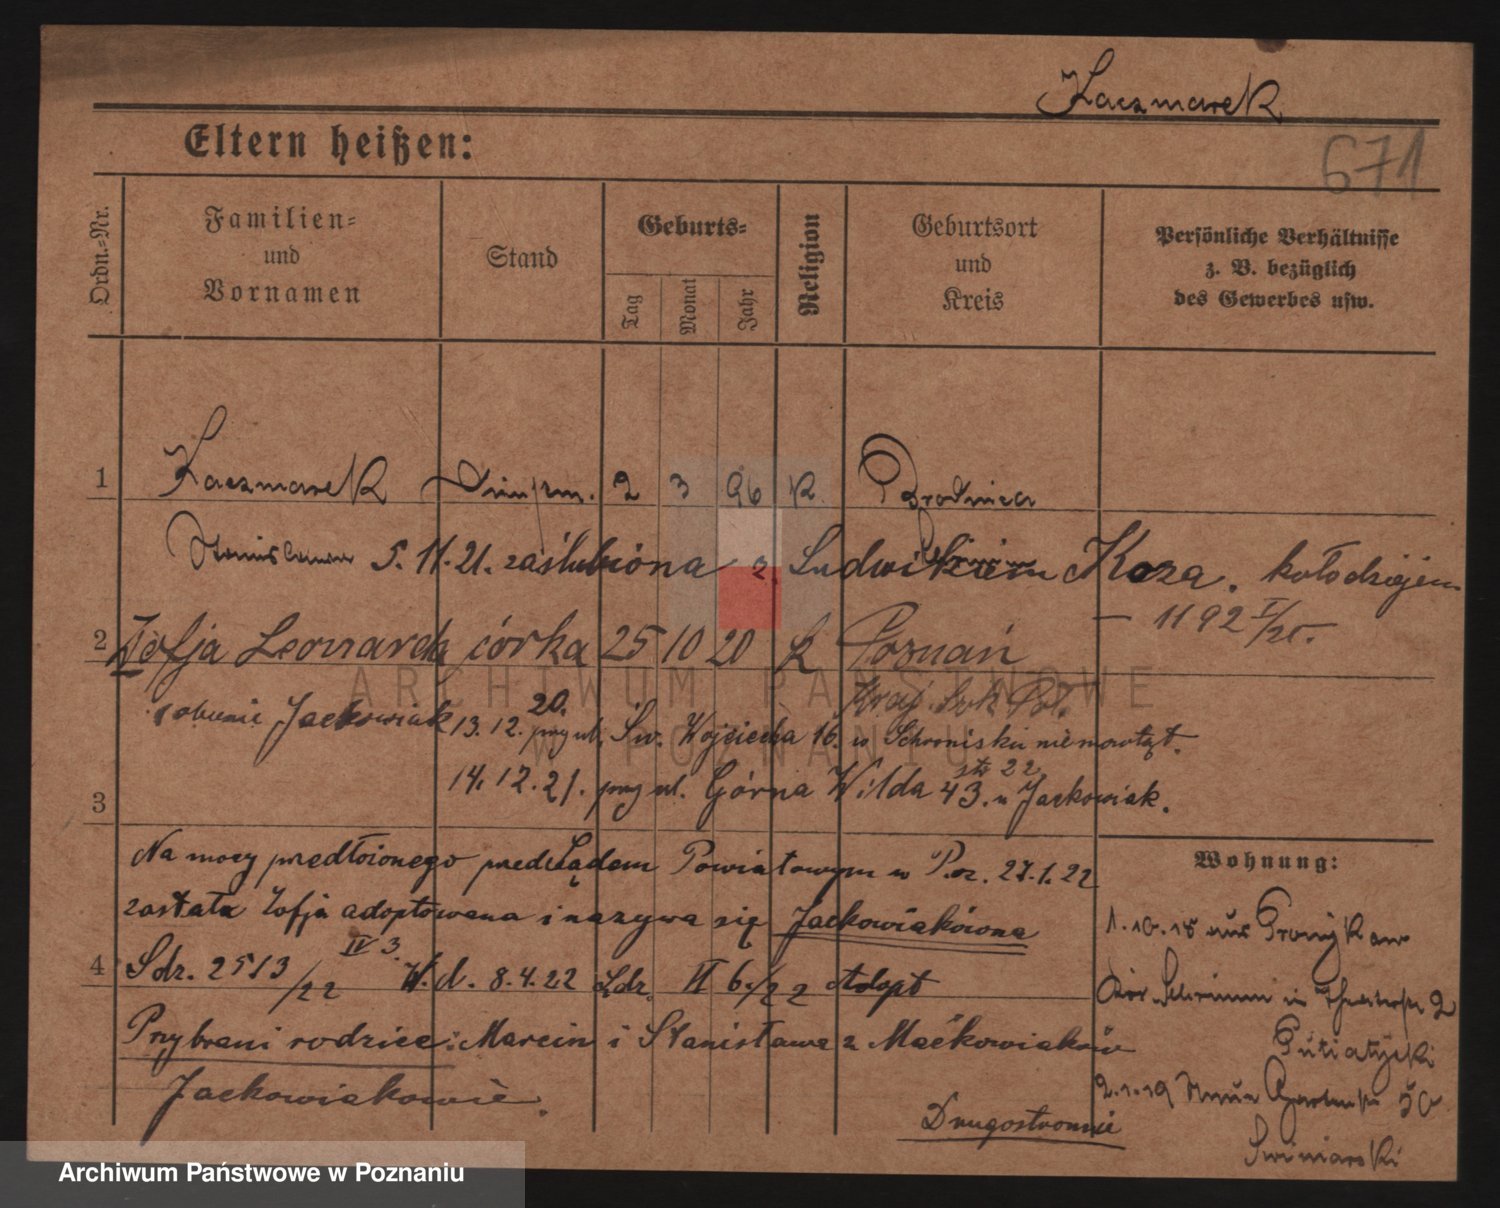 Kaczmarek
Eltern heißen:
671
Ordn.=Nr.
Familien=
und
Vornamen
Stand
Geburts=
Tag
Monat
Jahr
Religion
Geburtsort
und
Kreis
Persönliche Verhältnisse
z. B. bezüglich
des Gewerbes usw.
1 Kaczmarek 2 3 96 K Brodnica
5. 11. 21. zaślubiona z Ludwikiem Koza. kołodziejem
2 Zofja Leonarda córka 25 10 20 k Poznań
— 1192 I/25.
obecnie Jackowiak 13. 12. 20. przy ul. Św. Wojciecha 16. w Schronisku niemowląt.
3 14. 12. 21. przy ul. Górna Wilda 43. u Jackowiak.
str 22
Na mocy przedłożonego przed Sądem Powiatowym w Poz. 27.1.22
została Zofja adoptowana i nazywa się Jackowiakówna
4 Sdz. 2513/22 IV 3. W. d. 8.4.22 Ldz. II 6./22 Adopt
Przybrani rodzice: Marcin i Stanisława z Maćkowiaków
Jackowiakowie.
Drugostronnie
Wohnung:
1.10.18 aus
in 2
2.1.19 50
Swiniarski
ARCHIWUM PAŃSTWOWE
W POZNANIU
Archiwum Państwowe w Poznaniu